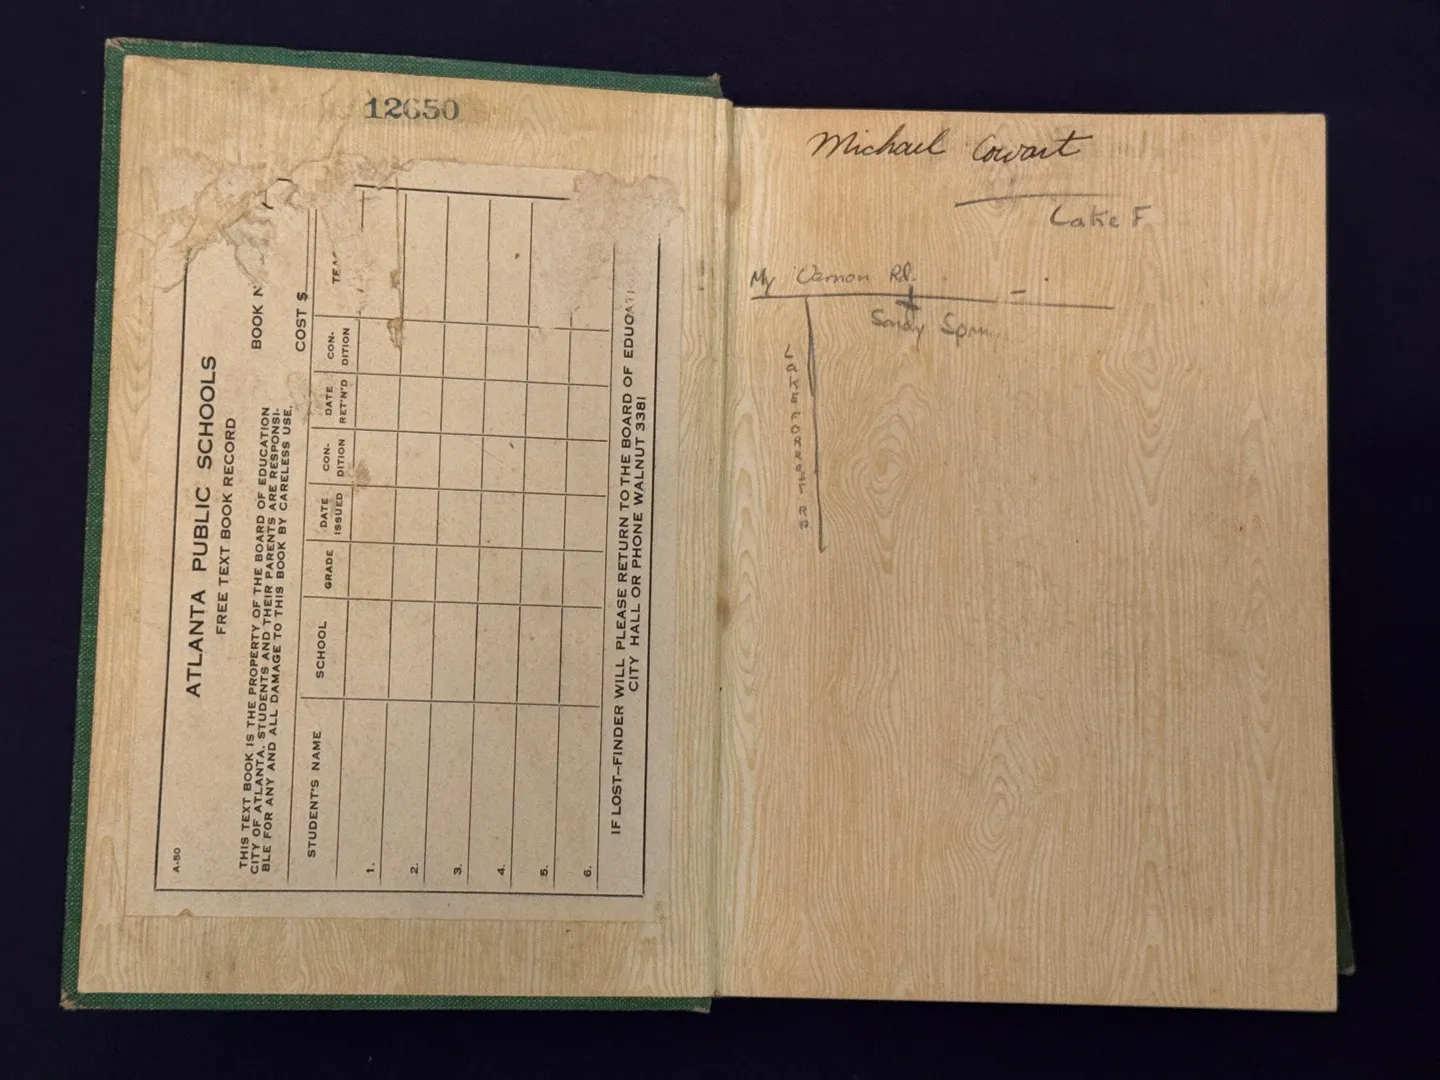 12650
A-50
ATLANTA PUBLIC SCHOOLS
FREE TEXT BOOK RECORD
BOOK N
THIS TEXT BOOK IS THE PROPERTY OF THE BOARD OF EDUCATION
CITY OF ATLANTA. STUDENTS AND THEIR PARENTS ARE RESPONSI-
BLE FOR ANY AND ALL DAMAGE TO THIS BOOK BY CARELESS USE.
COST $
STUDENT'S NAME
SCHOOL
GRADE
DATE ISSUED
CON-DITION
DATE RET'N'D
CON-DITION
TEA
1.
2.
3.
4.
5.
6.
IF LOST–FINDER WILL PLEASE RETURN TO THE BOARD OF EDUCATI
CITY HALL OR PHONE WALNUT 3381
Michael Cowart
Lake F
Vernon Rd.
Sandy